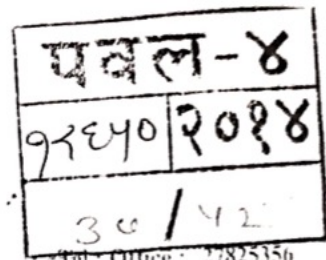 पवल-४
१२६५० २०१४
३७ / ५२
Tel : Office : 27825356